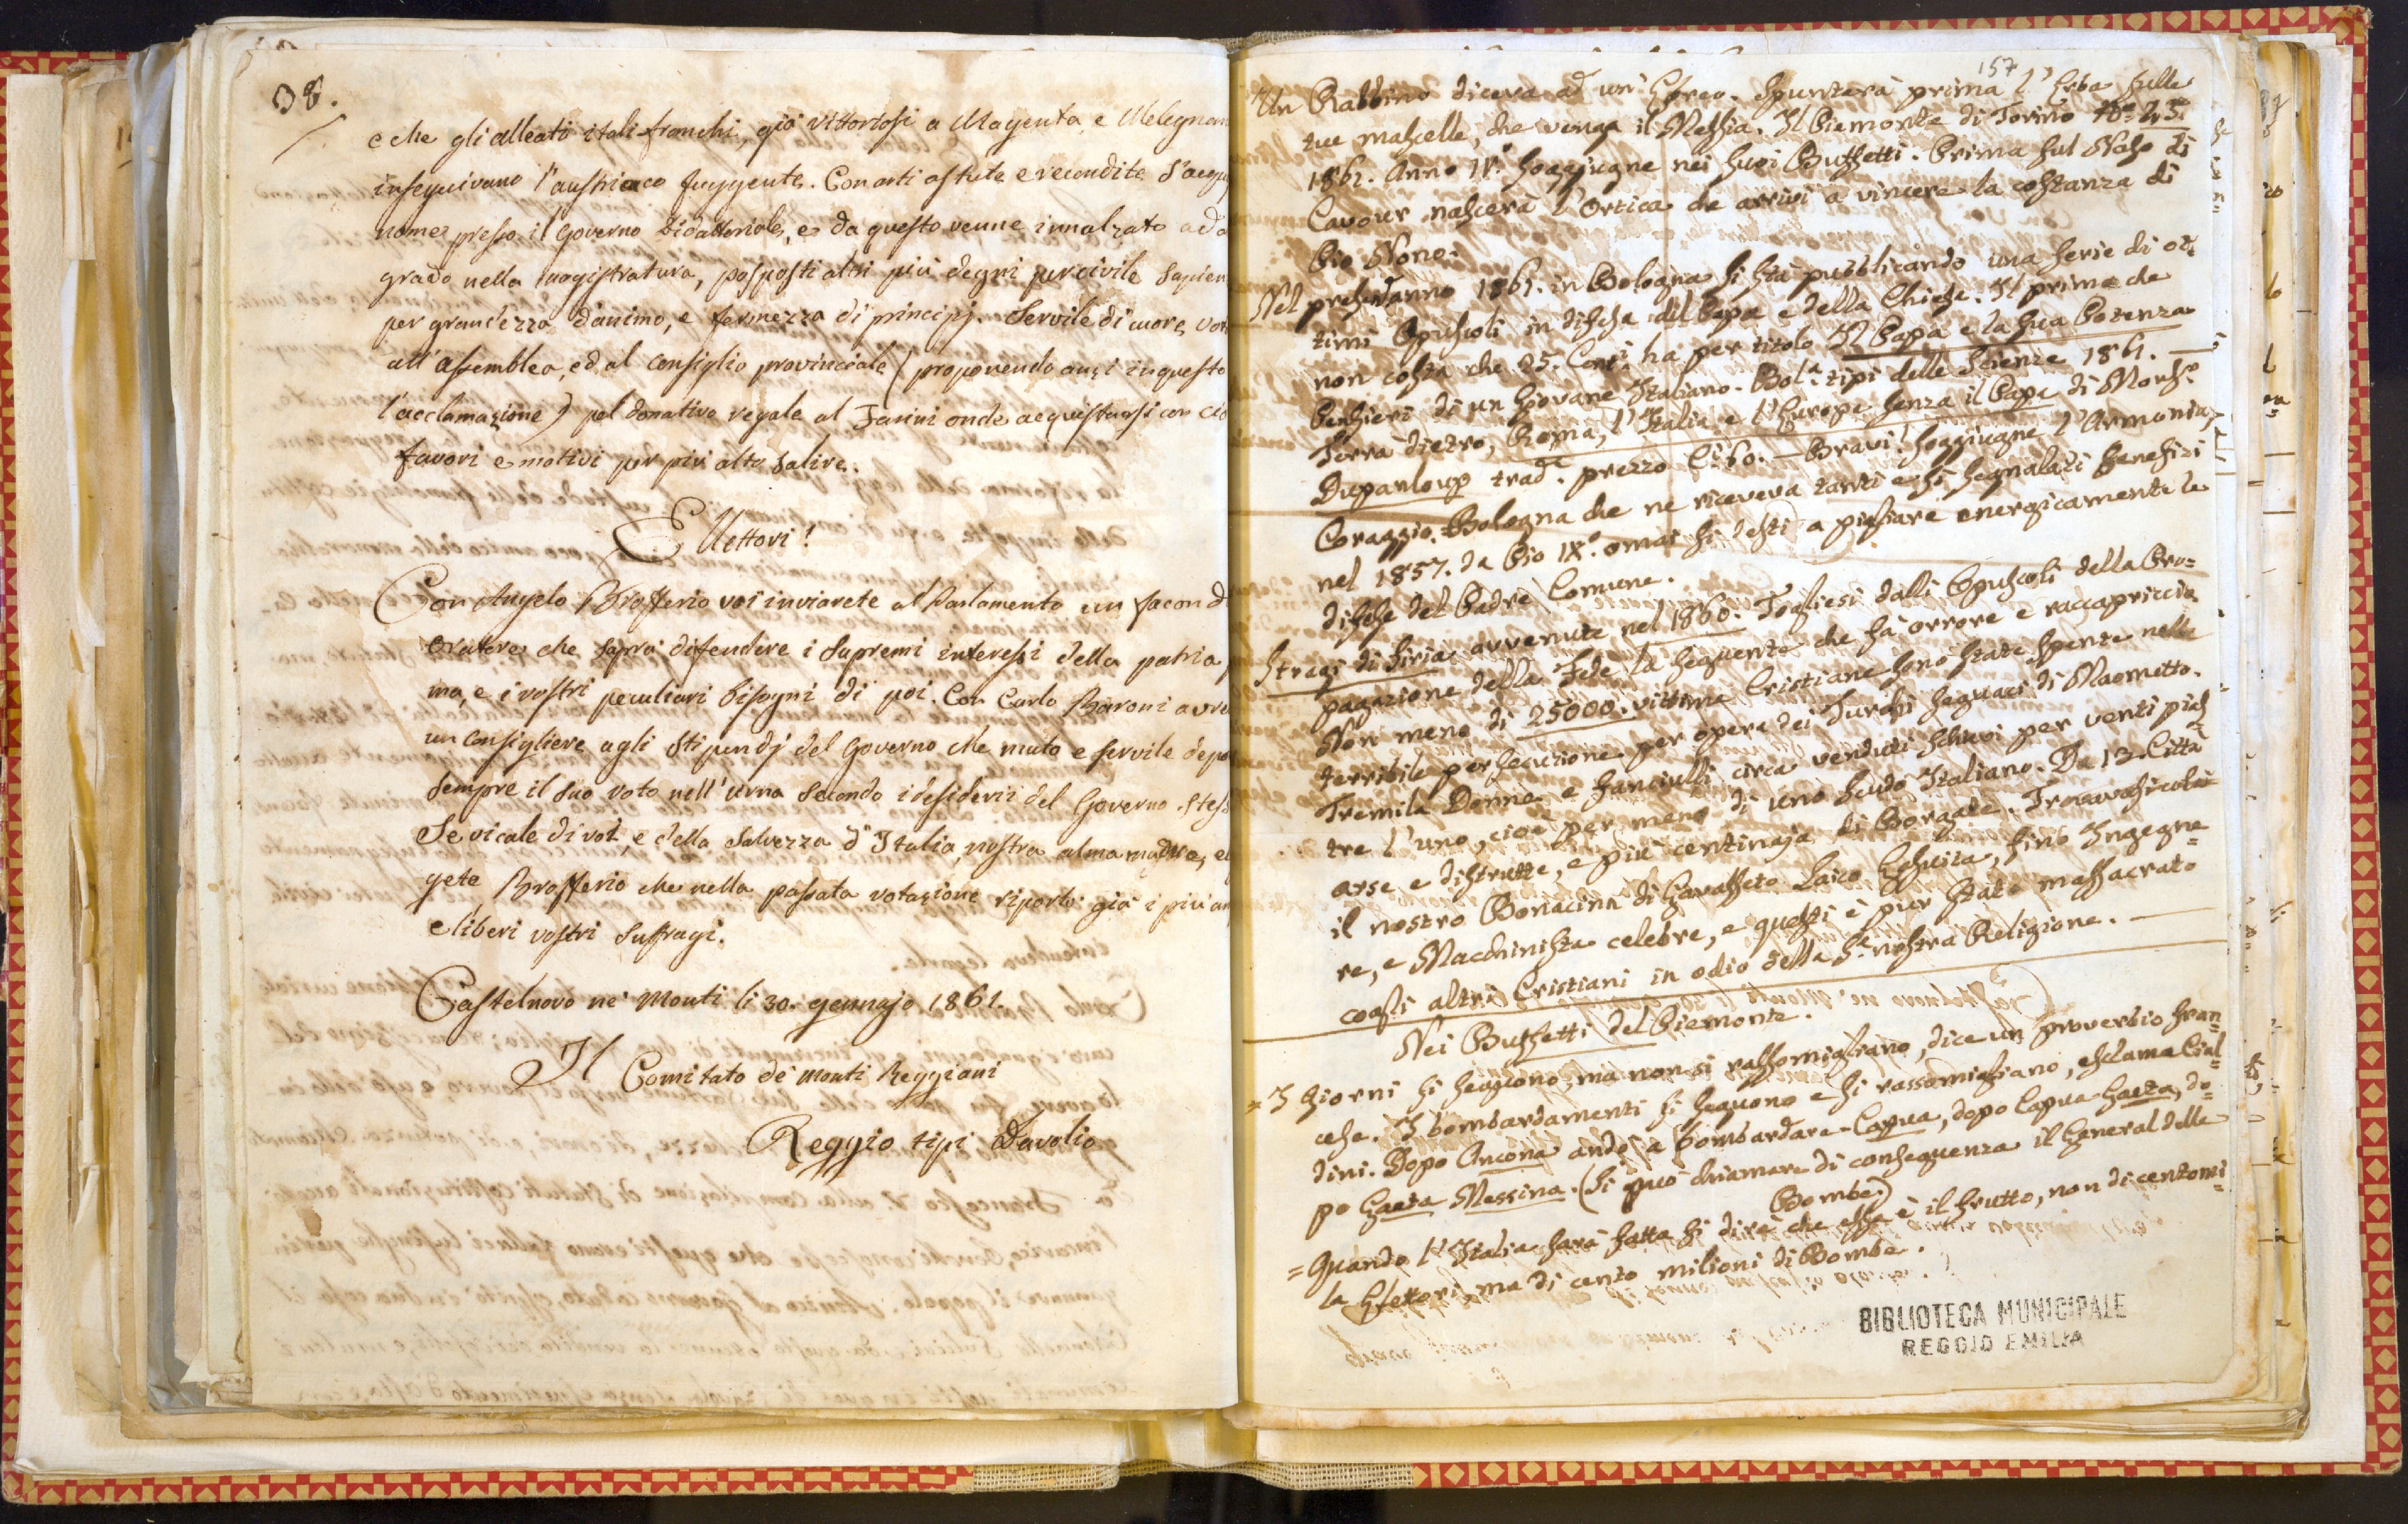 38.
e che gli alleati itali franchi, già vittoriosi a Magenta e Melegnan
inseguivano l'austriaco fuggente. Con arti astute e recondite s'acqu
nome presso il Governo Didattoriale, e da questo venne innalzato ad a
grado nella magistratura, posposti altri più degni per civile sapien
per grandezza d'animo, e fermezza di principj. Servile di cuore, vot
all'Assemblea, ed al consiglio provinciale (proponendo anzi in questo
l'acclamazione) pel donativo regale al Farini onde acquistarsi con ciò
favori e motivi per più alto salire.
Elettori!
Con Angelo Brofferio voi inviarete al Parlamento un facond
oratore che saprà difendere i supremi interessi della patria
ma, e i vostri peculiari bisogni di poi. Con Carlo Baroni avre
un consigliere agli stipendj del Governo che muto e servile depo
sempre il suo voto nell'urna secondo i desiderii del Governo stess
Se vi cale di voi, e della salvezza d'Italia, nostra alma madre, e
gete Brofferio che nella passata votazione riportò già i più am
e liberi vostri suffragi.
Castelnovo ne' Monti li 30. gennajo 1861.
Il Comitato de' monti Reggiani
Reggio tipi Davolio
157
Un Rabbino diceva ad un' Ebreo. Spunterà prima l'Erba sulle
tue mascelle, che venga il Messia. Il Piemonte di Torino No. 25.
1861. Anno IV.° soggiugne nei suoi Buffetti. Prima sul Naso di
Cavour nascerà l'Ortica che arrivi a vincere la costanza di
Pio Nono.
Nel prese. anno 1861. in Bologna si stà pubblicando una serie di ot-
timi Opuscoli in difesa del Papa e della Chiesa. Il primo che
non costa che 25. Cent.i ha per titolo Il Papa e la sua Potenza
Pensieri di un Giovane Italiano. Bol.a tipi delle Scienze 1861.
Terrà dietro, Roma, l'Italia e l'Europa senza il Papa di Mons.r
Dupanloup trad.e prezzo C.i 60. — Bravi! soggiugne l'Armonia,
Coraggio. Bologna che ne riceveva tanti e sì segnalati Benefizi
nel 1857. da Pio IX.° omai si desti a pigliare energicamente le
difese del Padre Comune.
Stragi di Siria avvenute nel 1860. Togliesi dalli Opuscoli della Pro-
pagazione della Fede la seguente che fà orrore e raccapriccio
Non meno di 25000. vittime Cristiane sono state spente nella
terribile persecuzione per opera dei Turchi seguaci di Maometto.
Tremila Donne e fanciulli circa venduti schiavi per venti pias
tre l'uno, cioè per meno di uno scudo Italiano. Da 12 Città
arse e distrutte, e più centinaja di Borgate. Trovavasi colà
il nostro Bonacina di Cavasseto Laico Gesuita, fino Ingegne-
re, e Macchinista celebre, e questi è pur stato massacrato
cogli altri Cristiani in odio della S.a nostra Religione. —
Nei Buffetti del Piemonte.
= I Giorni si seguono, ma non si rassomigliano, dice un proverbio fran-
cese. I bombardamenti si seguono e si rassomigliano, esclama Cial-
dini. Dopo Ancona andò a bombardare Capua, dopo Capua Gaeta, do-
po Gaeta Messina. (Si può chiamare di conseguenza il General delle
Bombe.)
= Quando l'Italia sarà fatta si dirà che essa è il frutto, non di centomi-
la Elettori, ma di cento milioni di Bombe.
BIBLIOTECA MUNICIPALE
REGGIO EMILIA